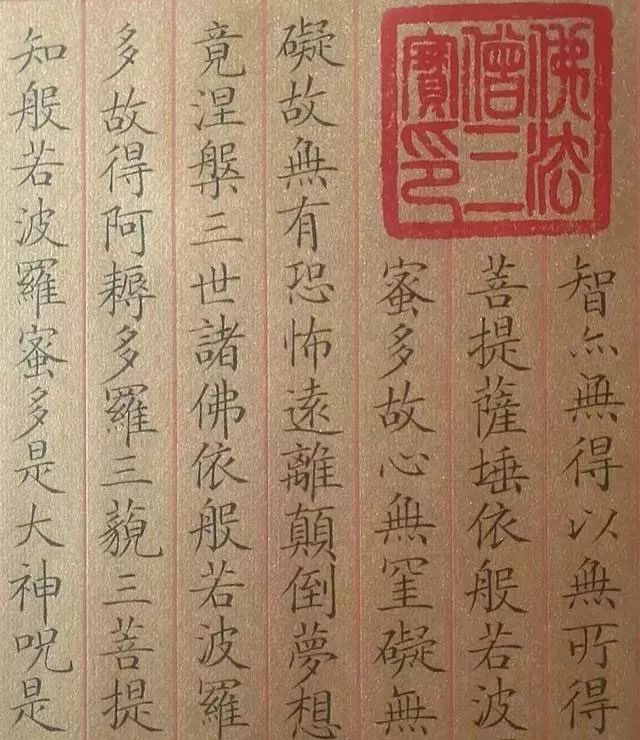 佛法
僧三
寶印
智亦無得以無所得
菩提薩埵依般若波
蜜多故心無罣礙無
礙故無有恐怖遠離顛倒夢想
竟涅槃三世諸佛依般若波羅
多故得阿耨多羅三藐三菩提
知般若波羅蜜多是大神呪是